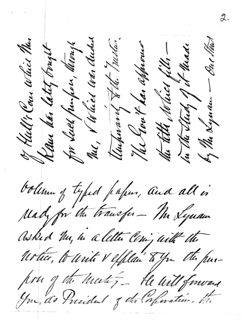 2.
of Hall's Cove which Mr
Kane has lately bought
for such purpose, through
me, & which was deeded
temporarily to the Trustee.
The Gov't has approved
the title, which fills—
in the study of it made
by Mr Lyman— one thick
volume of typed paper, and all is
ready for the transfer— Mr Lynam
asked me, in a letter comig with the
notice, to write & explain to you the pur-
pose of the meeting— He will forward
you, as President of do Corporation, the